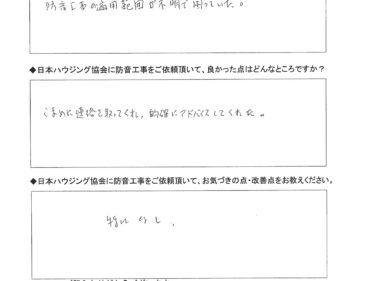 防音工事の適用範囲が不明で困っていた。
◆日本ハウジング協会に防音工事をご依頼頂いて、良かった点はどんなところですか？
こまめに連絡を取ってくれ、的確にアドバイスしてくれた。
◆日本ハウジング協会に防音工事をご依頼頂いて、お気づきの点・改善点をお教えください。
特になし、